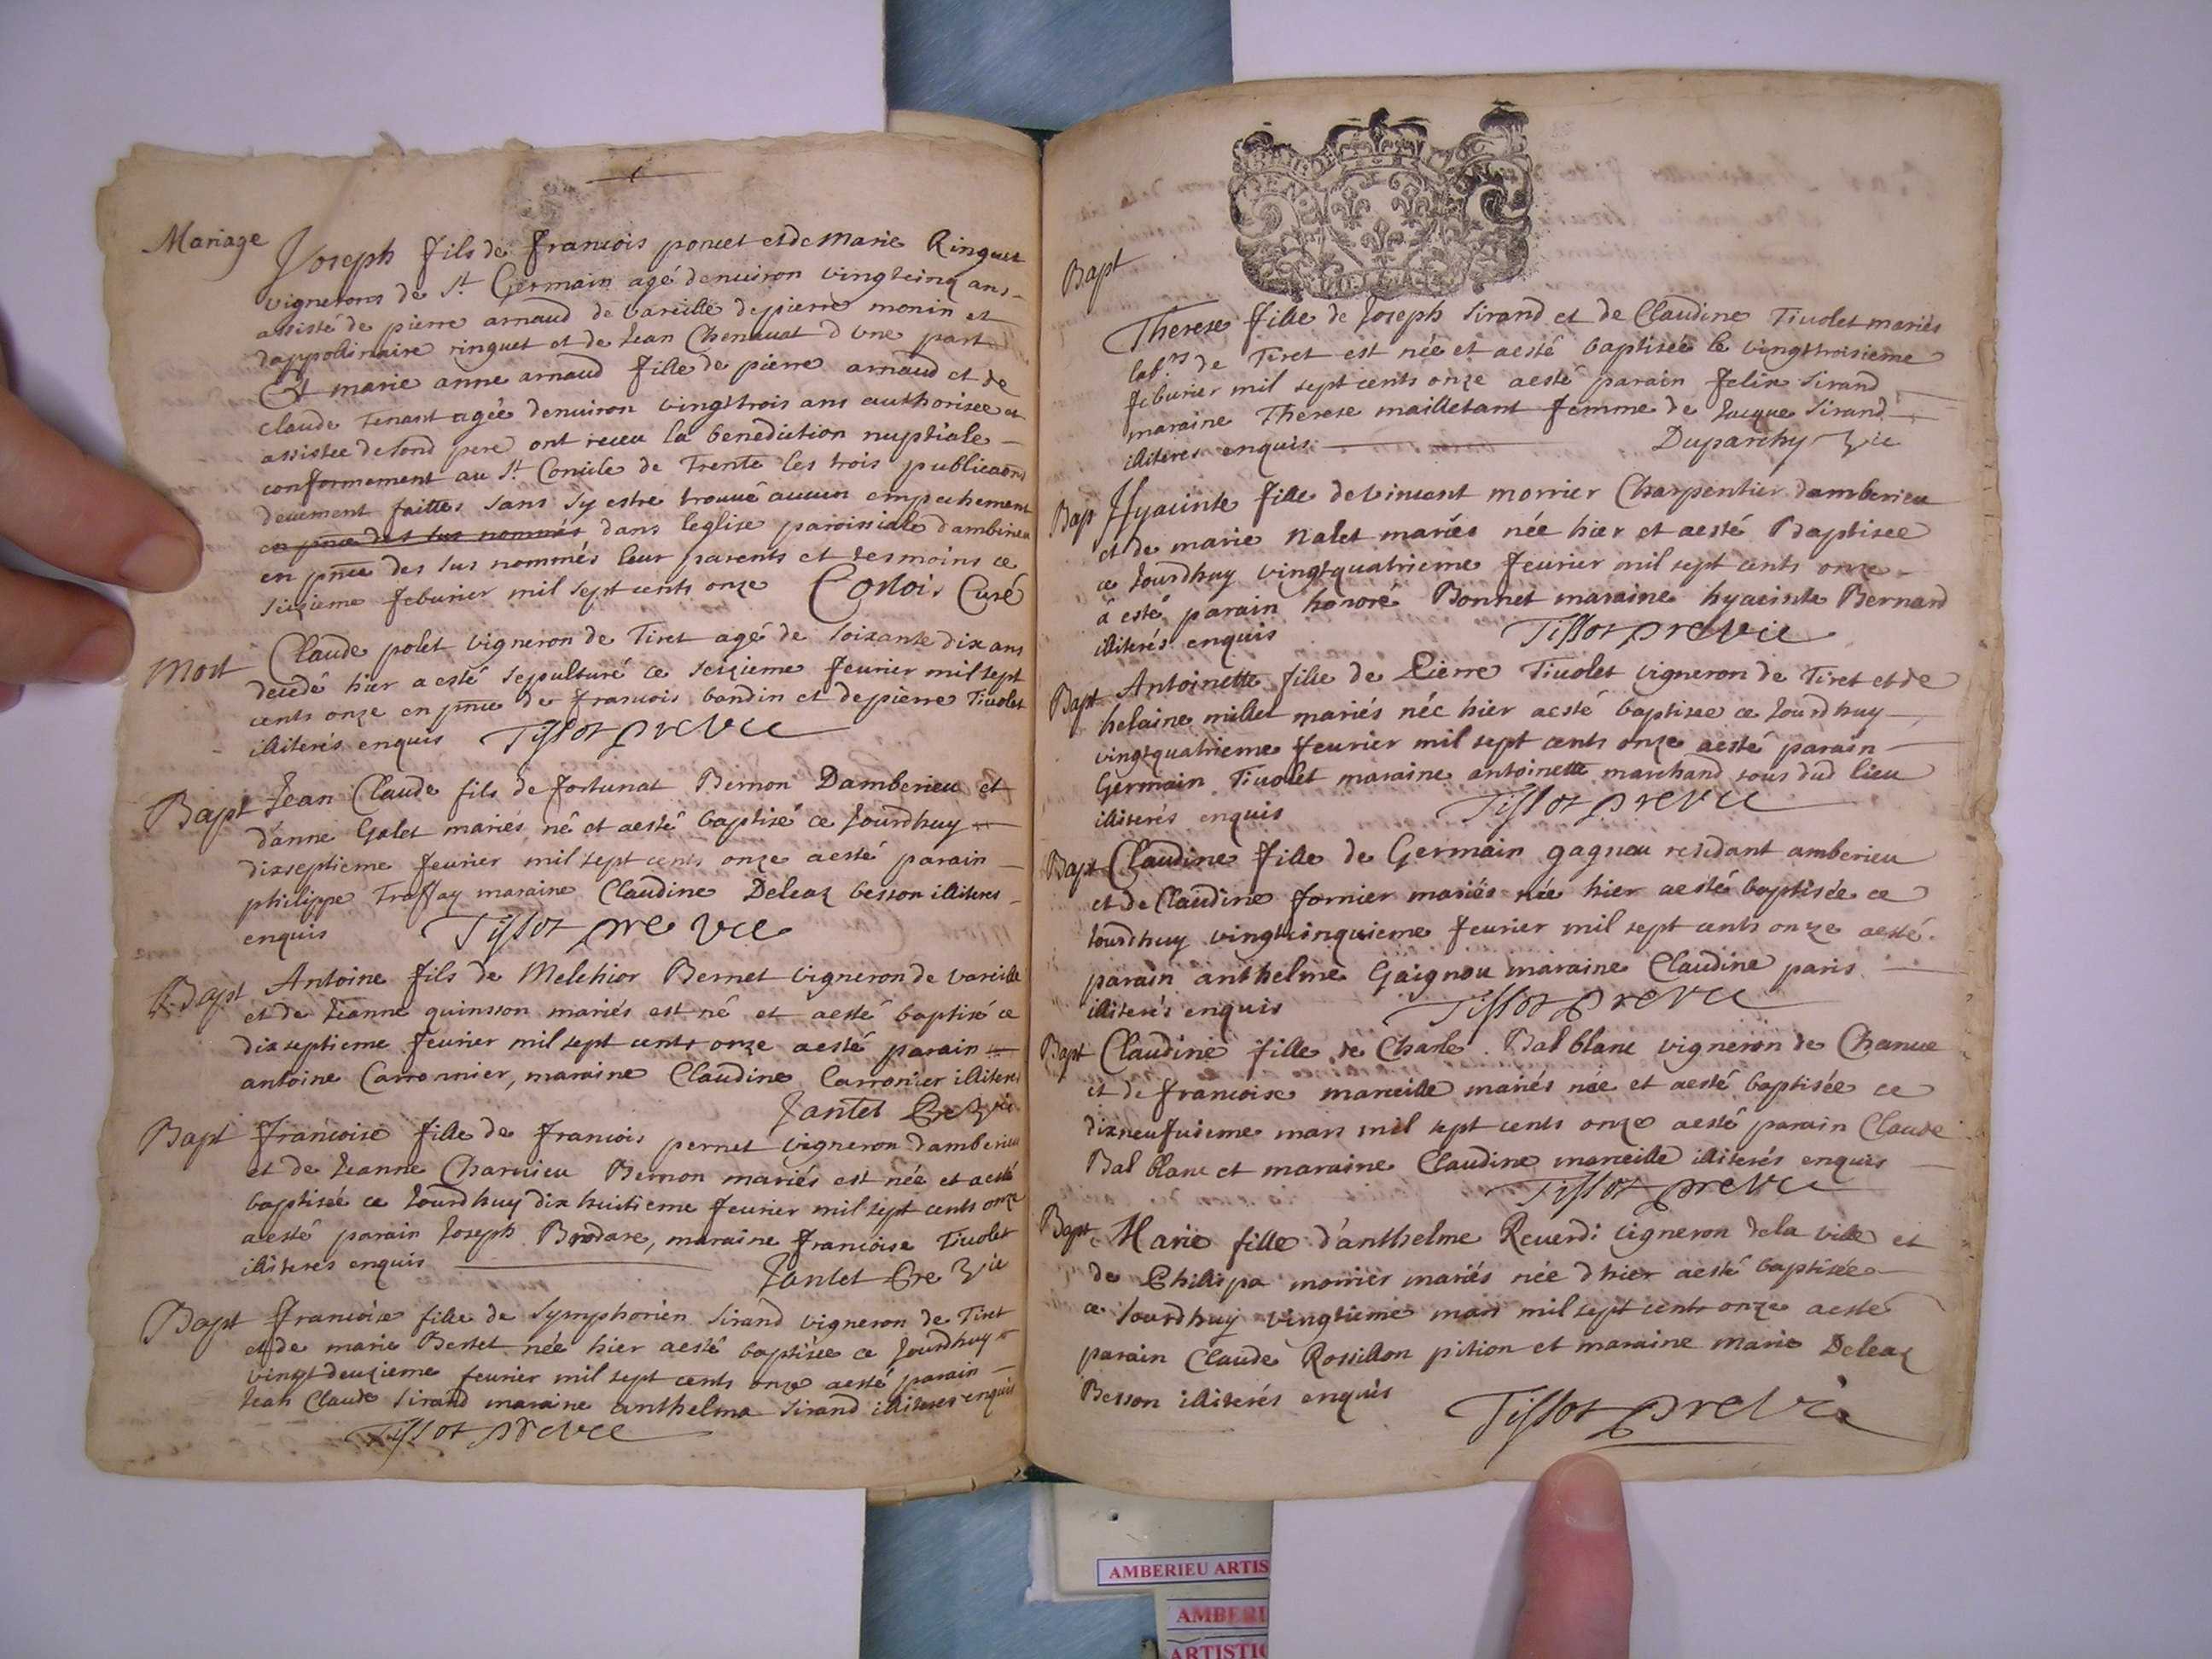 Mariage
Joseph fils de francois poncet et de Marie Ringuet
vignerons de St Germain agé denuiron vingtcinq ans
assisté de pierre arnaud de vareille de pierre monin et
dappollinaire ringuet et de Jean Chenauat d'une part
Et marie anne arnaud fille de pierre arnaud et de
claude Tenant agée denuiron vingttrois ans authorisee et
assistee de sond pere ont receu la benediction nuptiale
conformement au St Concile de Trente les trois publicaons
deuement faittes sans sy estre trouué aucun empechement
en pnce des sus nommés, dans leglise paroissiale dambrieu
en pnce des sus nommés leur parents et tesmoins ce
seizieme feburier mil sept cents onze Curé
Mort
Claude polet vigneron de Tiret agé de soixante dix ans
decedé hier a esté sepulturé ce seizieme feurier mil sept
cents onze en pnce de francois bondin et de pierre Tiuolet
illiterés enquis Tissot pre vic
Bapt
Jean Claude fils de fortunat Bernon Damberieu et
d'anne Galet mariés né et aesté baptisé ce Jourdhuy
dixseptieme feurier mil sept cents onze aesté parain
philippe Traffay maraine Claudine Deleaz besson illiteres
enquis Tissot pre vic
Bapt
Antoine fils de Melchior Bernet vigneron de vareille
et de Jeanne quinsson mariés est né et aesté baptisé ce
dixseptieme feurier mil sept cents onze aesté parain
antoine Carronnier, maraine Claudine Carronier illiteres
Jantet Pre Vic
Bapt
francoise fille de francois pernet vigneron damberieu
et de Jeanne Charuieu Bernon mariés est née et aesté
baptisée ce Jourdhuy dix huitieme feurier mil sept cents onze
aesté parain Joseph Brodare, maraine francoise Tiuolet
illiterés enquis Jantet Pre Vic
Bapt
francoise fille de Symphorien Sirand vigneron de Tiret
et de marie Bertet née hier aesté baptisée ce Jourdhuy
vingt deuxieme feurier mil sept cents onze aesté parain
Jean Claude Sirand maraine anthelma Sirand illiteres enquis
Tissot pre vic
Bapt
Therese fille de Joseph Sirand et de Claudine Tiuolet mariés
labrs de Tiret est née et aesté baptisée le vingttroisieme
feburier mil sept cents onze aesté parain felix Sirand
maraine Therese mailletant femme de Jacque Sirand
illiteres enquis Duparchy Vic
Bap
Hyacinte fille de vincent morrier Charpentier damberieu
et de marie nalet mariés née hier et aesté Baptisee
ce Jourdhuy vingtquatrieme feurier mil sept cents onze
a esté parain honoré Bonnet maraine hyacinte Bernard
illiterés enquis Tissot pre vic
Bapt
Antoinette fille de Pierre Tiuolet vigneron de Tiret et de
helaine millet mariés née hier aesté baptisee ce Jourdhuy
vingtquatrieme feurier mil sept cents onze aesté parain
Germain Tiuolet maraine antoinette marchand tous dud lieu
illiterés enquis Tissot pre vic
Bapt
Claudine fille de Germain gagnou residant amberieu
et de Claudine fornier mariés née hier aesté baptisée ce
Jourdhuy vingtcinquieme feurier mil sept cents onze aesté
parain anthelme Gaignou maraine Claudine paris
illiterés enquis Tissot pre vic
Bapt
Claudine fille de Charle Bal blanc vigneron de Chanue
et de francoise marceille mariés née et aesté baptisée ce
dixneufuieme mars mil sept cents onze aesté parain Claude
Bal blanc et maraine Claudine marceille illiterés enquis
Tissot pre vic
Bapt
Marie fille d'anthelme Reuerdi vigneron dela ville et
de Philipa morrier mariés née d'hier aesté baptisée
ce Jourdhuy vingtieme mars mil sept cents onze aesté
parain Claude Rossillon pition et maraine marie Deleaz
Besson illiterés enquis Tissot pre vic
AMBERIEU ARTIS
AMBERI
ARTISTIQ